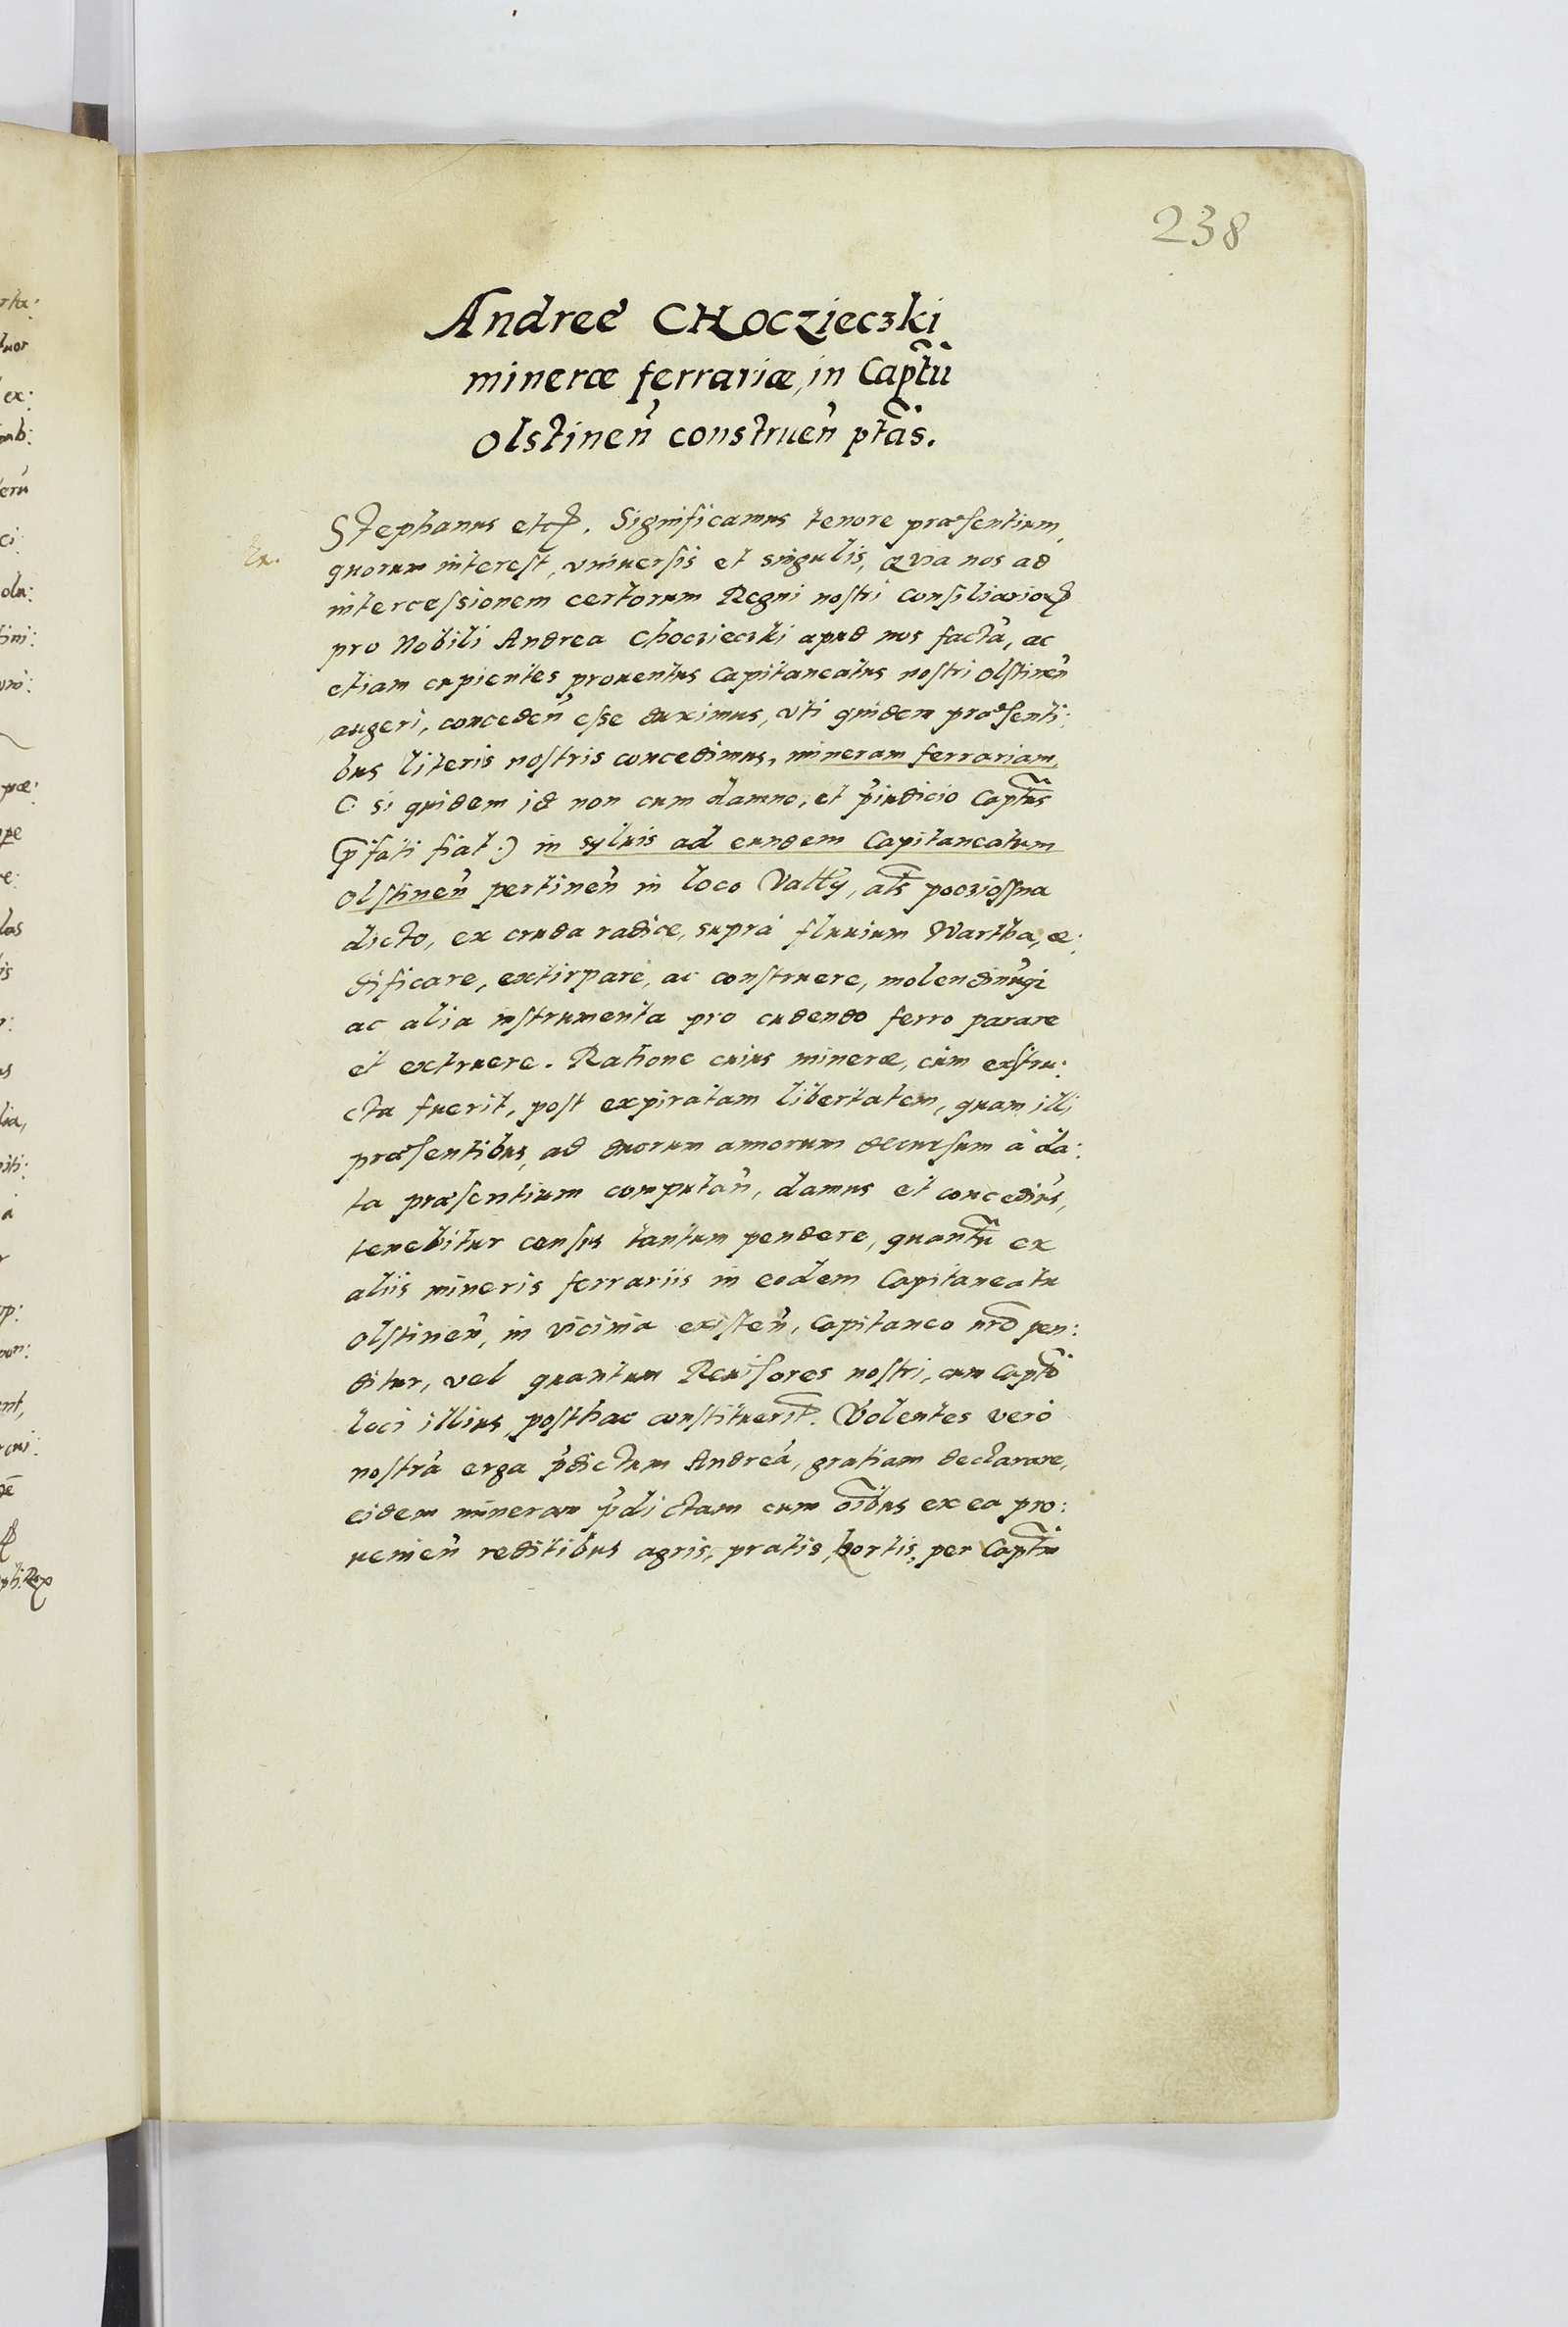 238
Andreę CHOCZIECZKI
mineræ ferrariæ, in Captũ
Olstineñ construeñ ptãs.
Ex.
Stephanus etc. Significamus tenore præsentium,
quorum interest, vniuersis et singulis, Quia nos ad
intercessionem certorum Regni nostri Consiliarioꝝ
pro Nobili Andrea Choczieczki apud nos factã, ac
etiam cupientes prouentus Capitaneatus nostri Olstineñ
augeri, concedeñ esse duximus, vti quidem præsenti:
bus literis nostris concedimus, mineram ferrariam,
(: si quidem id non cum damno, et p̃iudicio Captũs
p̃fati fiat :) in syluis ad eundem Capitaneatum
Olstineñ pertineñ in loco Vatty, als̃
dicto, ex cruda radice, suprà fluuium Wartha, æ:
dificare, extirpare, ac construere,
ac alia instrumenta pro cudendo ferro parare
et extruere. Ratione cuius mineræ, cùm exstru:
cta fuerit, post expiratam libertatem, quam illi
præsentibus, ad duorum annorum decursum à da:
ta præsentium computañ, damus et concedim̃s,
tenebitur census tantum pendere, quantũ ex
aliis mineris ferrariis in eodem Capitaneatu
Olstineñ, in vicinia existeñ, Capitaneo nrõ pen:
ditur, vel quantum Reuisores nostri, cum Captõ
loci illius, posthac constituerĩt. Volentes verò
nostrã erga p̃dictum Andreã, gratiam declarare,
eidem mineram p̃dictam cum oĩbus ex ea pro:
uenieñ reditibus agris, pratis, hortis, per Captũ